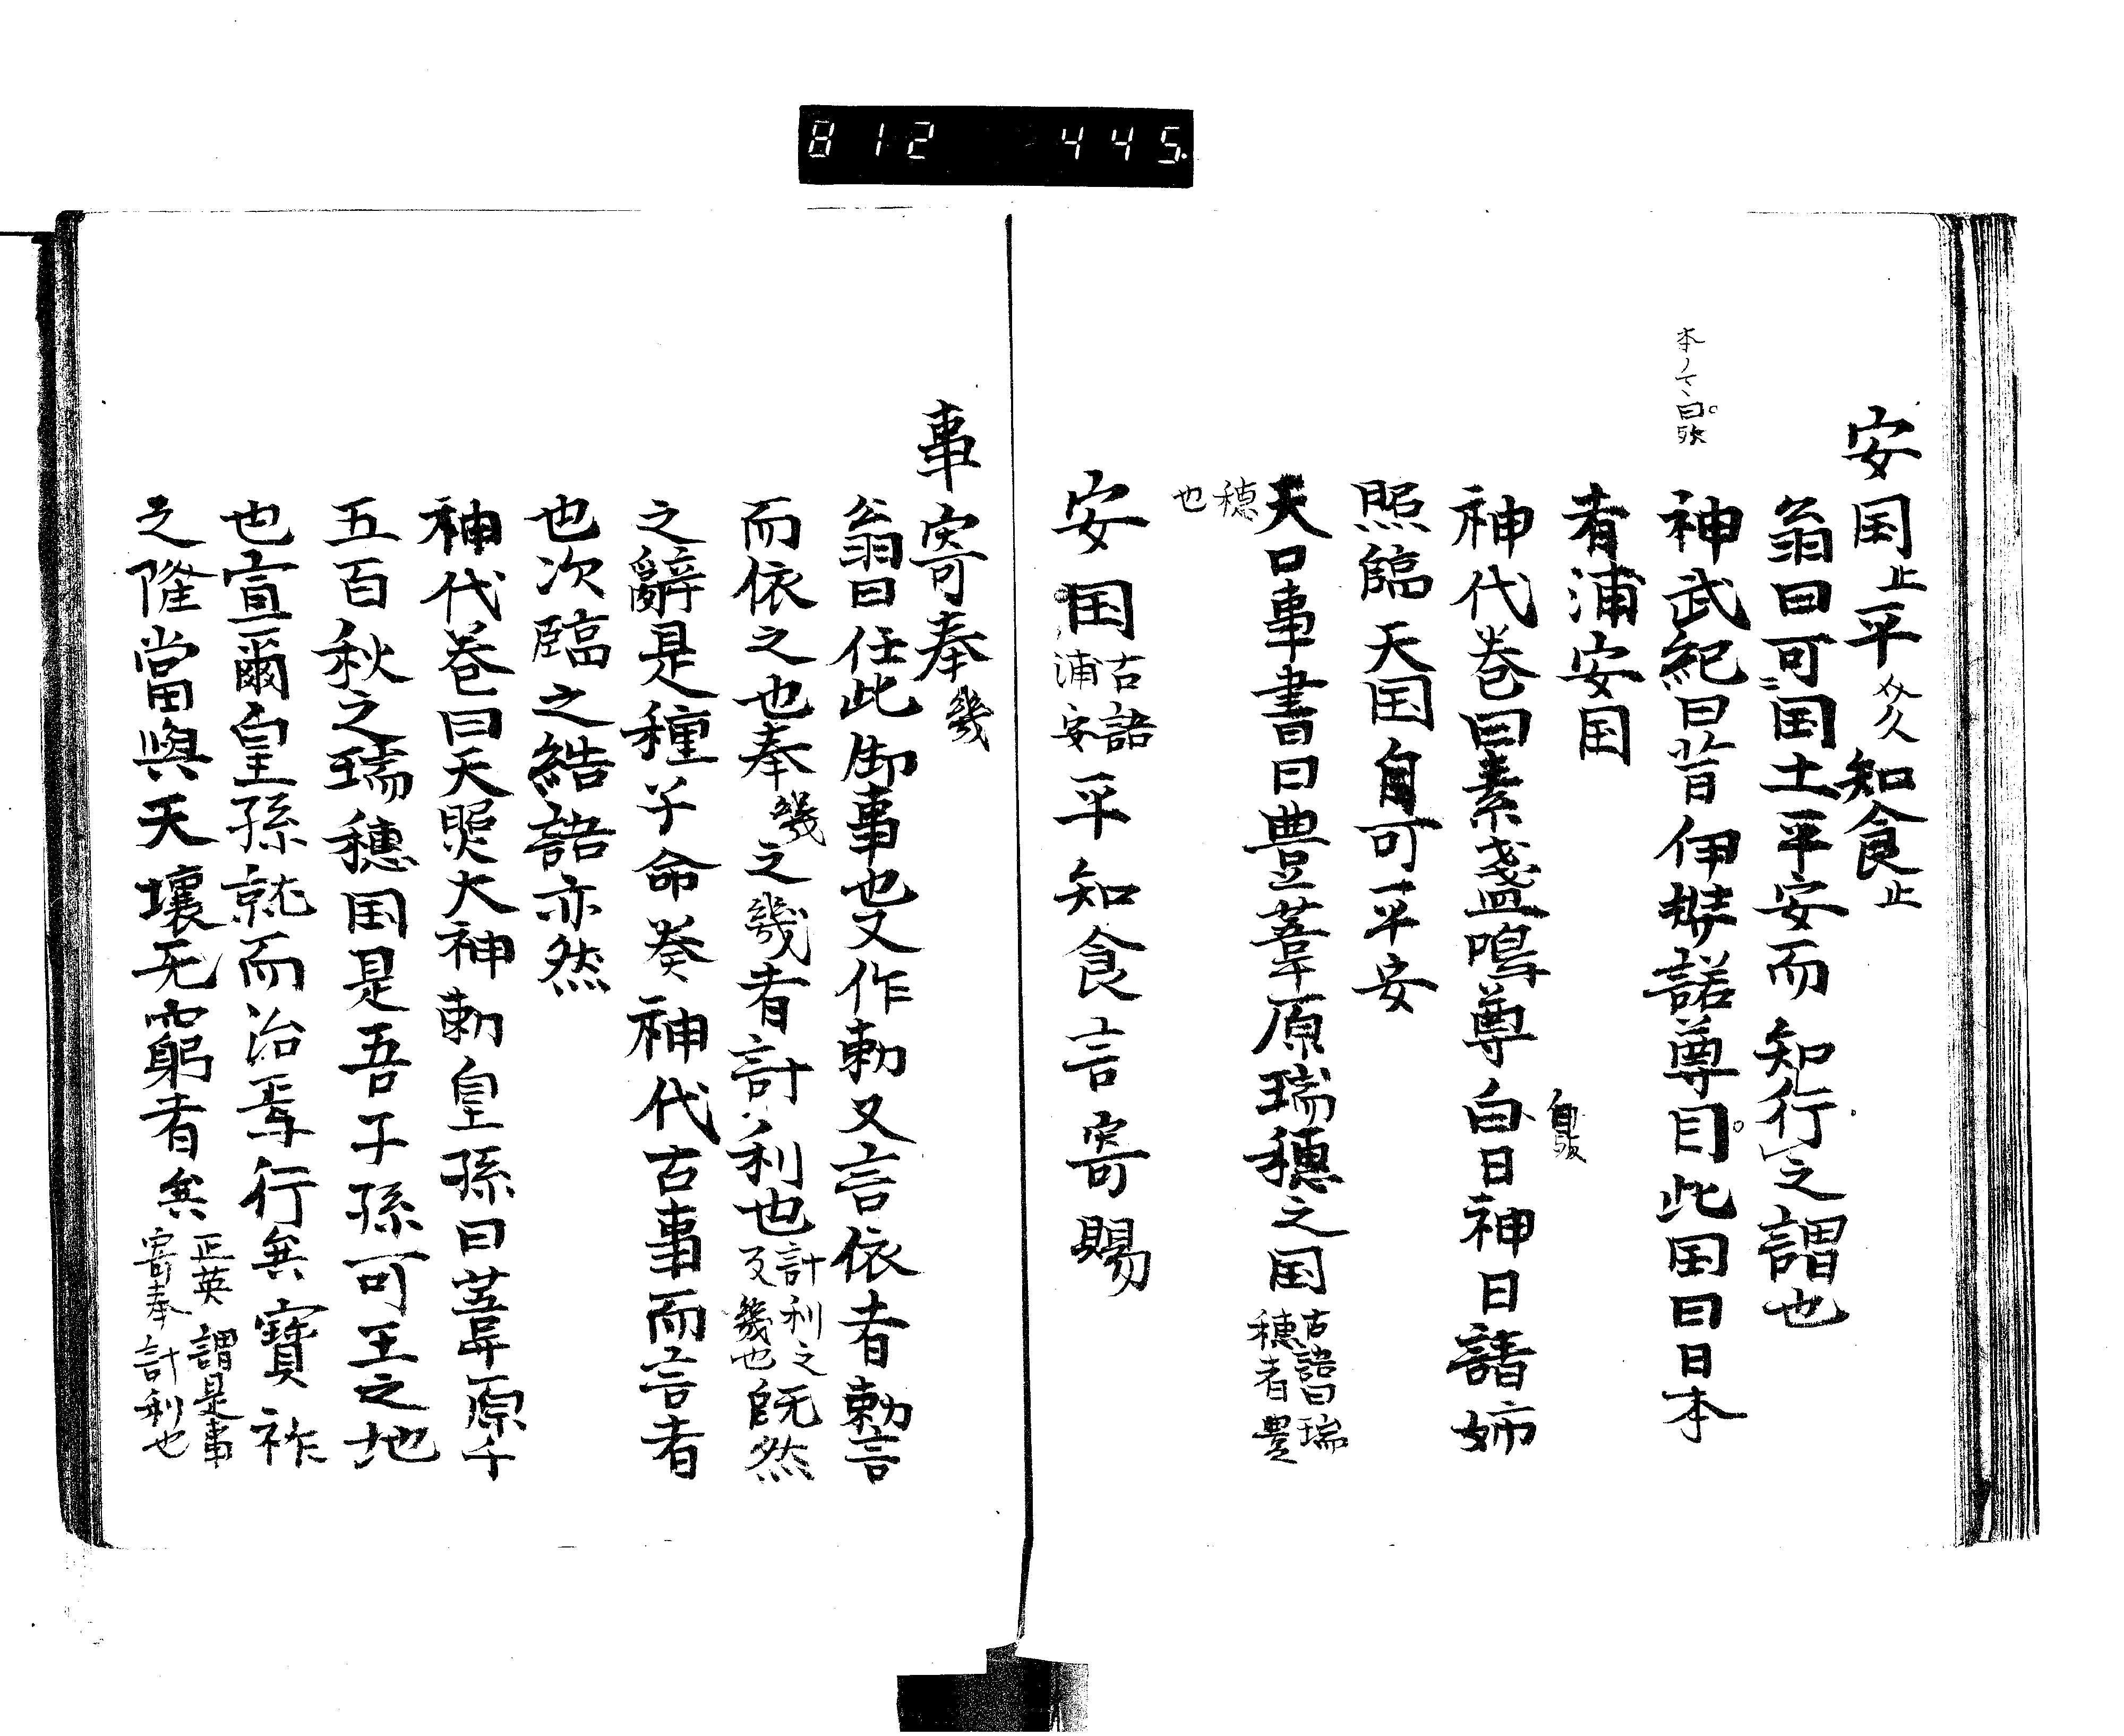 812 445
安国止平久知食止
翁曰可国土平安而知行之謂也
本ノマヽ曰欤
神武紀曰昔伊弉諾尊目此国曰日本
者浦安国
自欤
神代巻曰素盞嗚尊白日神日請姉
照臨天国自可平安
天口事書曰豊葦原瑞穂之国古語曰瑞穂者豊
穂也
安国古語浦安平知食言寄賜
事寄奉幾
翁曰任此御事也又作勅又言依者勅言
而依之也奉幾之幾者計利也計利之反幾也既然
之辭是種子命癸神代古事而言者
也次臨之結語亦然
神代巻曰天照大神勅皇孫曰葦原千
五百秋之瑞穂国是吾子孫可王之地
也宣爾皇孫就而治焉行矣寶祚
之隆當與天壤无窮者矣正英謂是事寄奉計利也